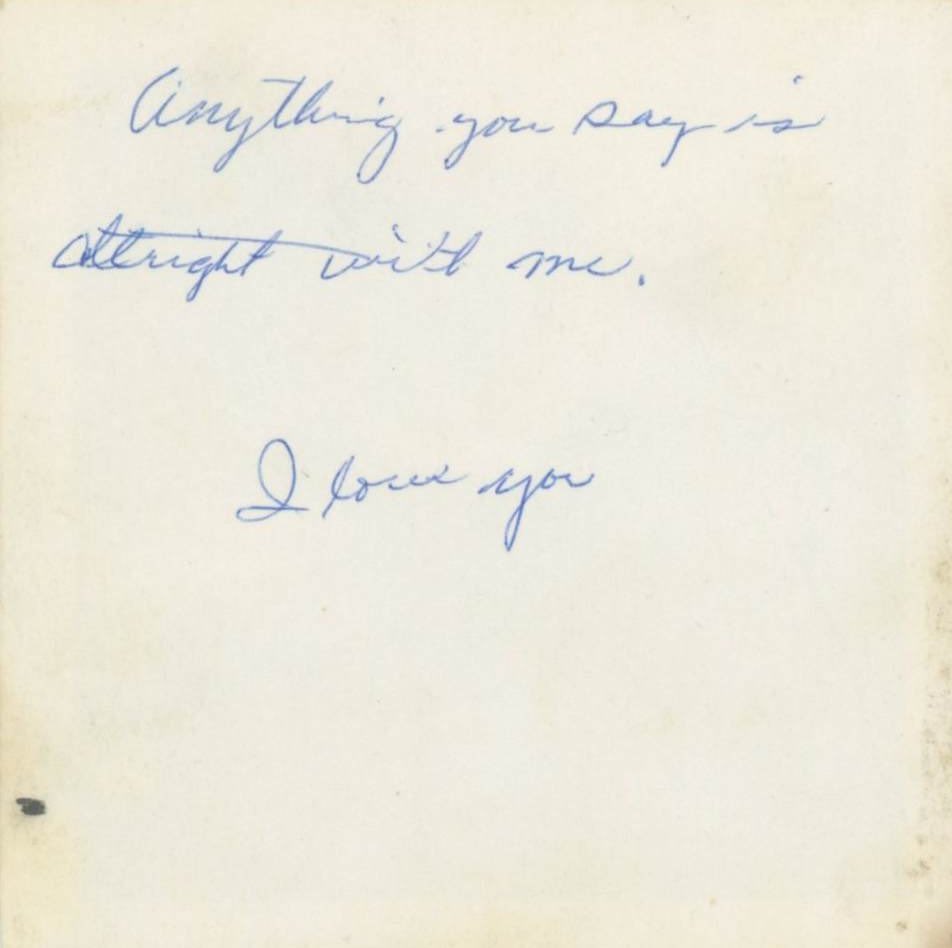 Anything you say is
alright with me.
I love you